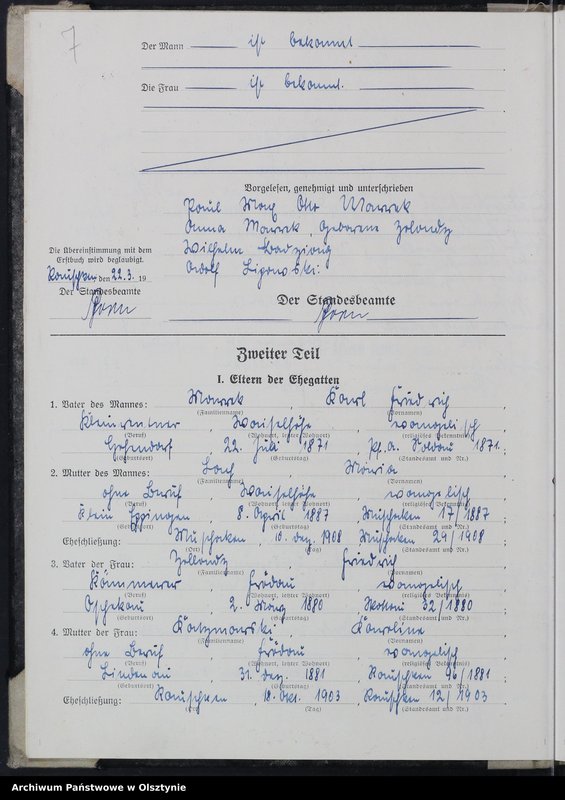 7
Der Mann ist bekannt
Die Frau ist bekannt.
Vorgelesen, genehmigt und unterschrieben
Paul Max Otto Marrek
Anna Marrek, geborene Zylondz
Wilhelm
Adolf Ligowski.
Die Übereinstimmung mit dem
Erstbuch wird beglaubigt.
Rauschken den 22.3. 19
Der Standesbeamte
Der Standesbeamte
Zweiter Teil
I. Eltern der Ehegatten
1. Vater des Mannes: Marrek, Karl Friedrich
(Familienname) (Vornamen)
Kleinrentner, evangelisch
(Beruf) (Wohnort, letzter Wohnort) (religiöses Bekenntnis)
22. Juli 1871, 1871.
(Geburtsort) (Geburtstag) (Standesamt und Nr.)
2. Mutter des Mannes: Maria
(Familienname) (Vornamen)
ohne Beruf, evangelisch
(Beruf) (Wohnort, letzter Wohnort) (religiöses Bekenntnis)
Klein, 8. April 1887, Muschaken 17/1887
(Geburtsort) (Geburtstag) (Standesamt und Nr.)
Eheschließung: Muschaken 10. Dez. 1908 Muschaken 29/1908;
(Ort) (Tag) (Standesamt und Nr.)
3. Vater der Frau: Zylondz, Friedrich
(Familienname) (Vornamen)
Kämmerer, Frödau, evangelisch
(Beruf) (Wohnort, letzter Wohnort) (religiöses Bekenntnis)
Oschekau, 2. März 1880, 32/1880
(Geburtsort) (Geburtstag) (Standesamt und Nr.)
4. Mutter der Frau: Karoline
(Familienname) (Vornamen)
ohne Beruf, Frödau, evangelisch
(Beruf) (Wohnort, letzter Wohnort) (religiöses Bekenntnis)
Lindenau, 31. Dez. 1881, Rauschken 96/1881
(Geburtsort) (Geburtstag) (Standesamt und Nr.)
Eheschließung: Rauschken, 18. Okt. 1903, Rauschken 12/1903;
(Ort) (Tag) (Standesamt und Nr.)
Archiwum Państwowe w Olsztynie